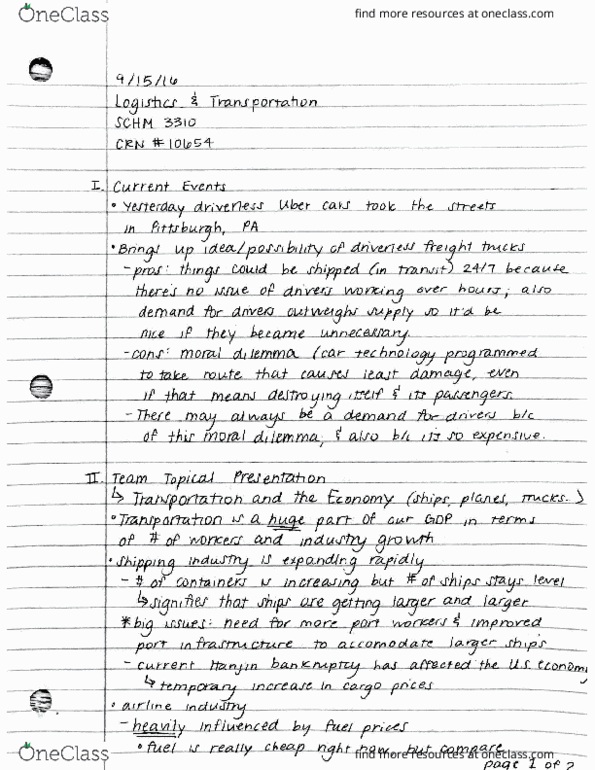 OneClass
find more resources at oneclass.com
9/15/16
Logistics & Transportation
SCHM 3310
CRN # 10654
I. Current Events
• Yesterday driverless Uber cars took the streets
in Pittsburgh, PA
• Brings up idea/possibility of driverless freight trucks
- pros: things could be shipped (in transit) 24/7 because
there's no issue of drivers working over hours; also
demand for drivers outweighs supply so it'd be
nice if they became unnecessary.
- cons: moral dilemma (car technology programmed
to take route that causes least damage, even
if that means destroying itself & its passengers.
- There may always be a demand for drivers b/c
of this moral dilemma, & also b/c it's so expensive.
II. Team Topical Presentation
↳ Transportation and the Economy (ships, planes, trucks.)
• Transportation is a huge part of our GDP in terms
of # of workers and industry growth
• shipping industry is expanding rapidly
- # of containers is increasing but # of ships stays level
↳ signifies that ships are getting larger and larger
* big issues: need for more port workers & improved
port infrastructure to accomodate larger ships
- current Hanjin bankruptcy has affected the U.S. economy
↳ temporary increase in cargo prices
• airline industry
- heavily influenced by fuel prices
• fuel is really cheap right now, but compare
OneClass
find more resources at oneclass.com
page 1 of 2